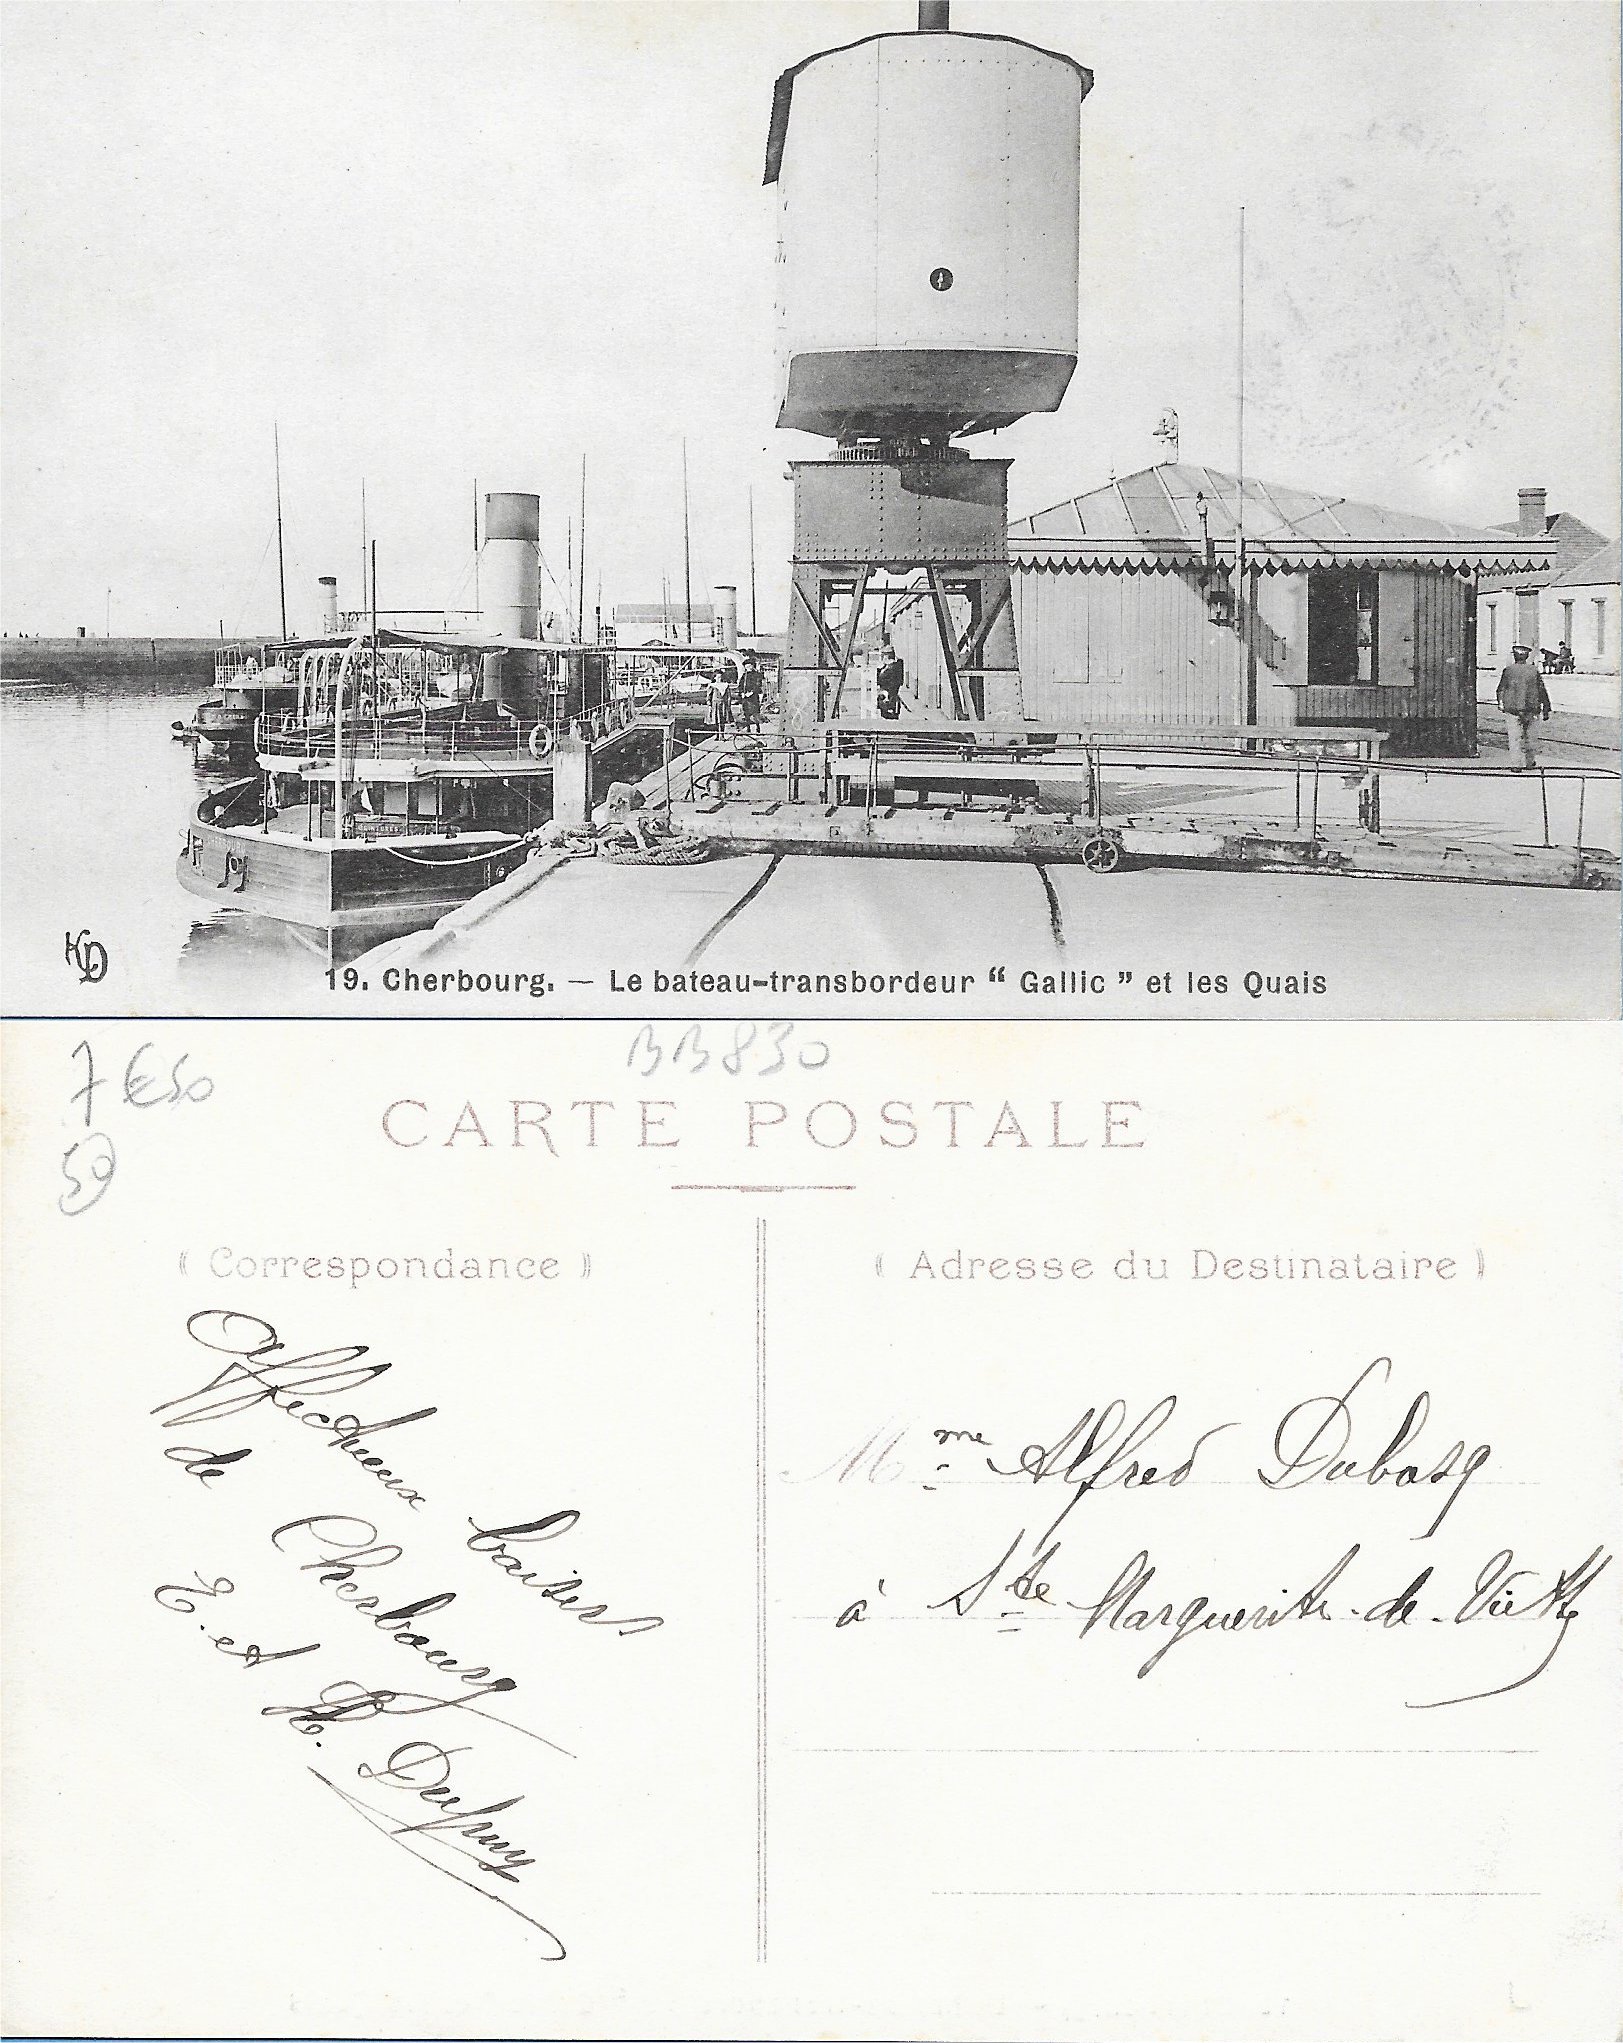 KD
19. Cherbourg. — Le bateau-transbordeur “ Gallic ” et les Quais
BB830
7€50
50
CARTE POSTALE
« Correspondance »
« Adresse du Destinataire »
Affectueux baisers
de Cherbourg
E. et H. Dupuy
Mme Alfred Dubosq
à Ste Marguerite-de-Viette